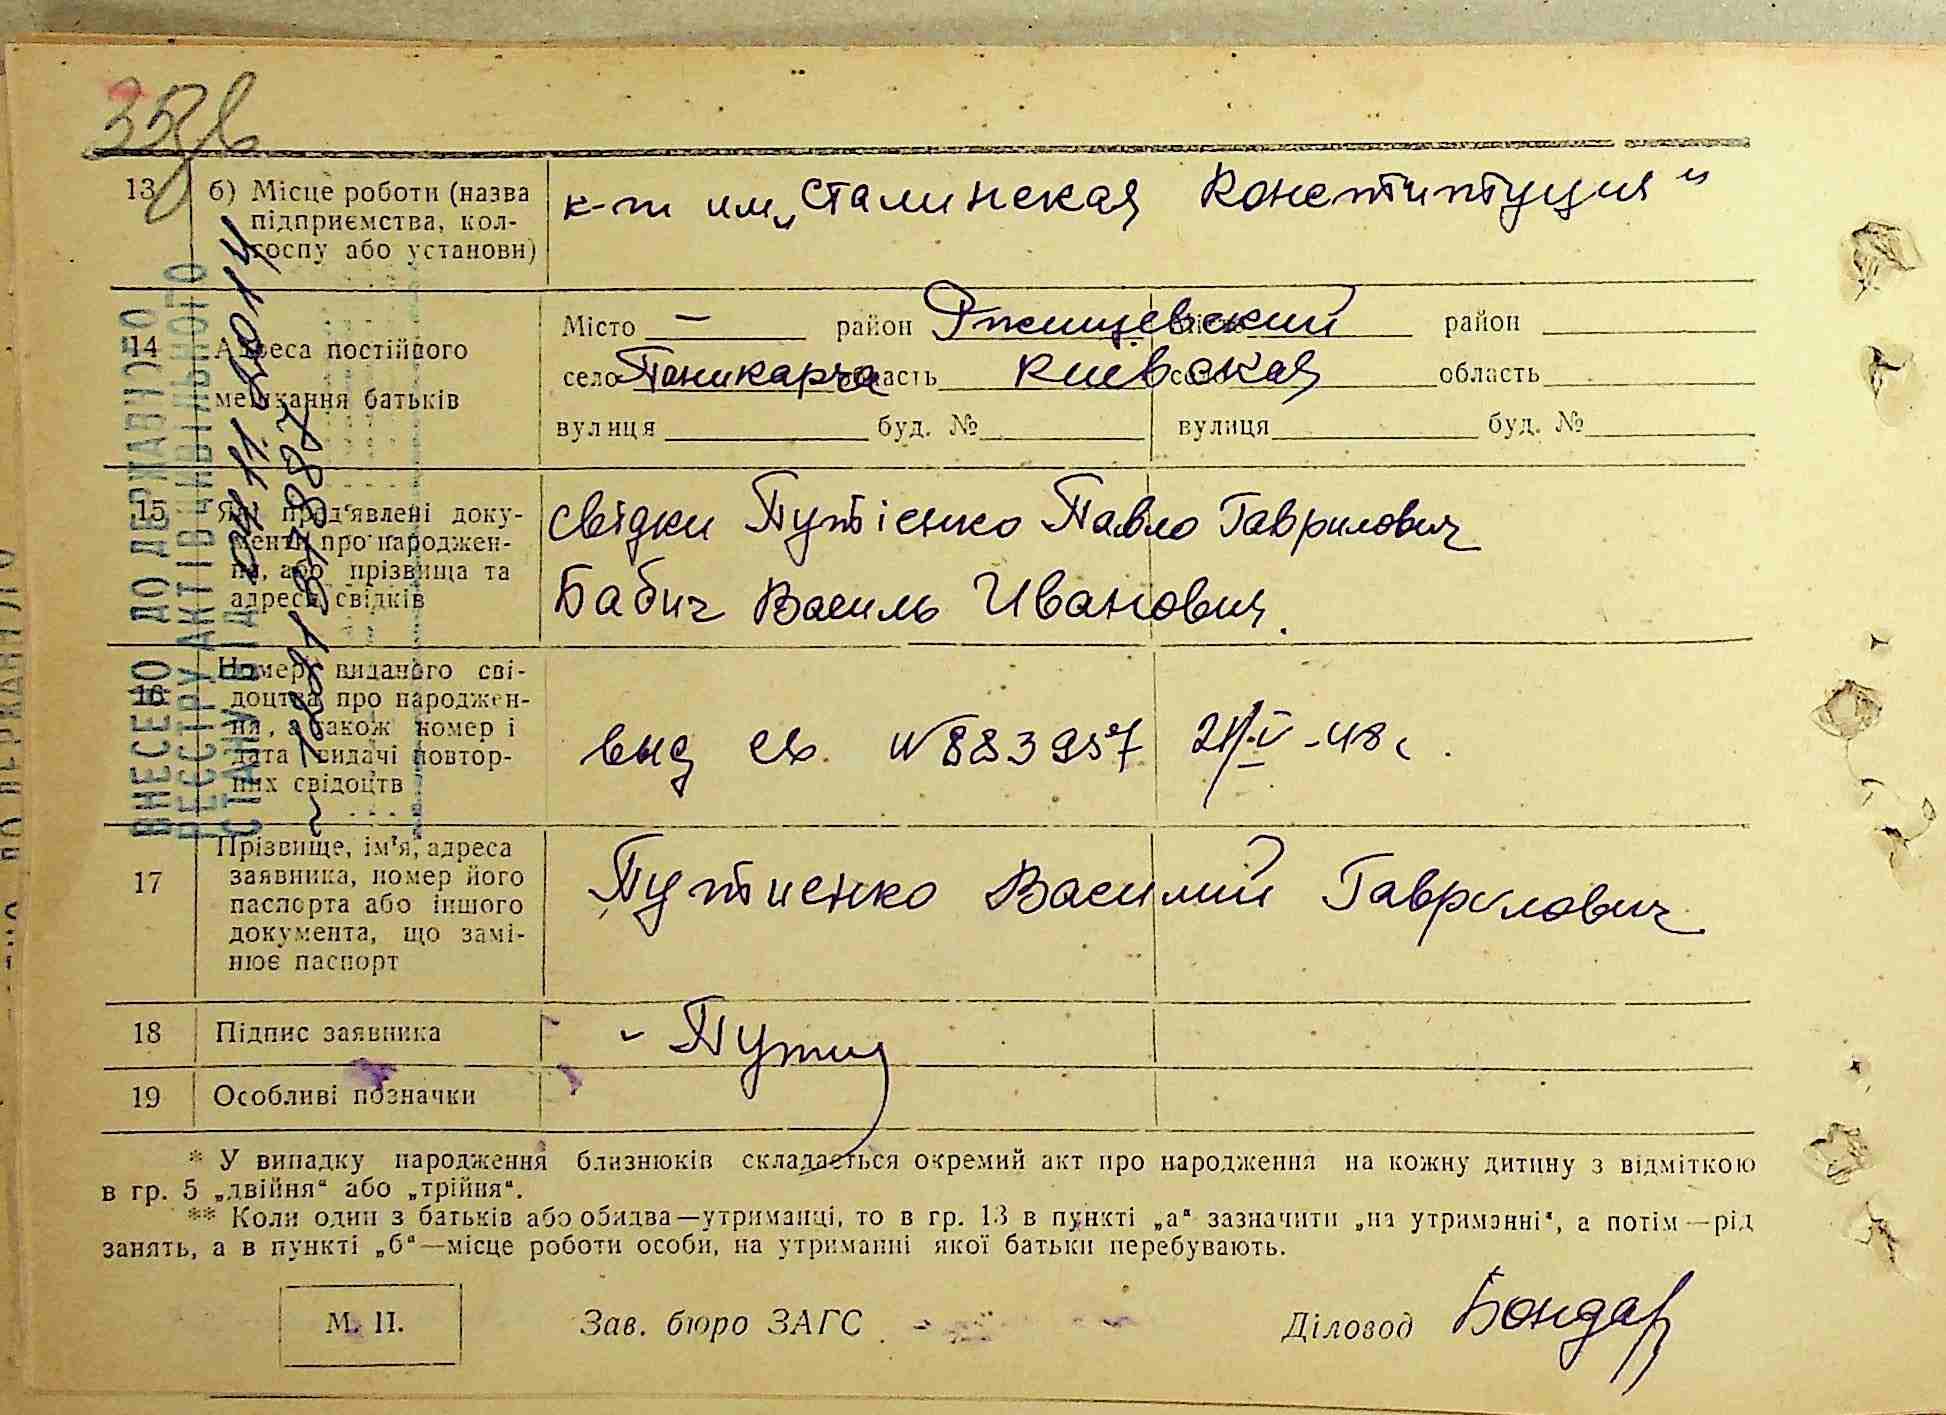 13 б) Місце роботи (назва підприємства, колгоспу або установи)
к-т им. „Сталинская Конституция"
14 Адреса постійного мешкання батьків
Місто — район Ржищевский район
село Паникарча область Киевская село область
вулиця буд. № вулиця буд. №
15 Які пред'явлені документи про народження, або прізвища та адреси свідків
свідки Путієнко Павло Гаврилович
Бабич Василь Иванович.
16 Номер виданого свідоцтва про народження, а також номер і дата видачі повторних свідоцтв
выд св. № 883957 21/IV-48 г.
17 Прізвище, ім'я, адреса заявника, номер його паспорта або іншого документа, що замінює паспорт
Путиенко Василий Гаврилович
18 Підпис заявника
19 Особливі позначки
* У випадку народження близнюків складається окремий акт про народження на кожну дитину з відміткою
в гр. 5 „двійня“ або „трійня“.
** Коли один з батьків або обидва—утриманці, то в гр. 13 в пункті „а“ зазначити „на утриманні“, а потім—рід
занять, а в пункті „б“—місце роботи особи, на утриманні якої батьки перебувають.
М. П. Зав. бюро ЗАГС Діловод Бондар
ВНЕСЕНО ДО ДЕРЖАВНОГО
РЕЄСТРУ АКТІВ ЦИВІЛЬНОГО
СТАНУ